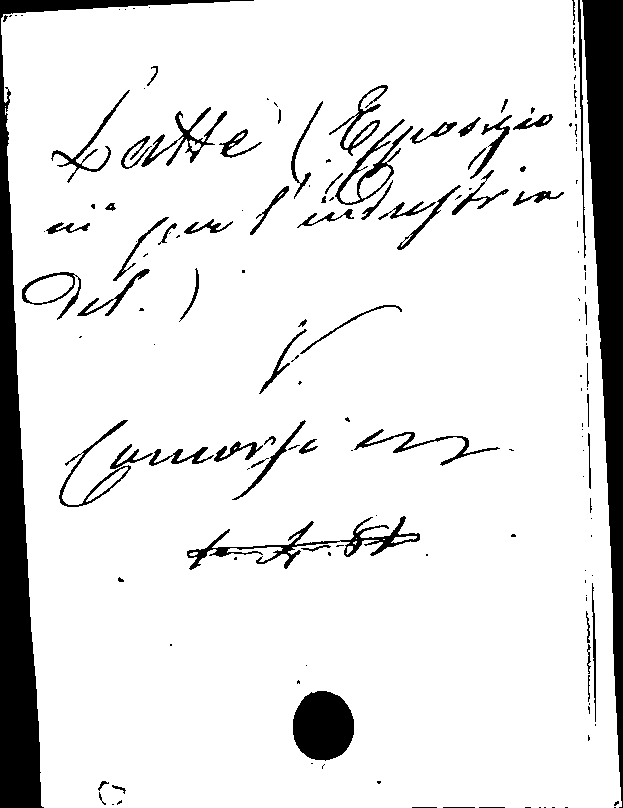 Latte (Esposizio
ni per l'industria
del.)
V.
Concorsi